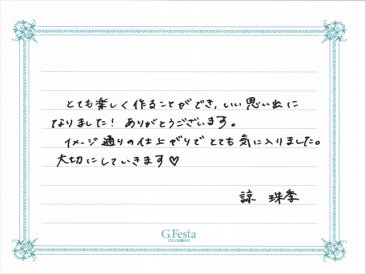 とても楽しく作ることができ、いい思い出に
なりました！ありがとうございます。
イメージ通りの仕上がりでとても気に入りました。
大切にしていきます♡
諒 珠季
G.Festa